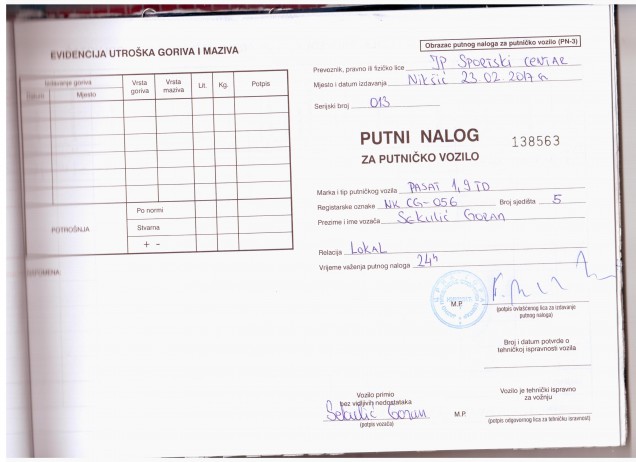 EVIDENCIJA UTROŠKA GORIVA I MAZIVA
Izdavanje goriva
Datum
Mjesto
Vrsta goriva
Vrsta maziva
Lit.
Kg.
Potpis
POTROŠNJA
Po normi
Stvarna
+ -
Obrazac putnog naloga za putničko vozilo (PN-3)
Prevoznik, pravno ili fizičko lice JP SPORTSKI CENTAR
Mjesto i datum izdavanja Nikšić 23.02.2017 g
Serijski broj 013
PUTNI NALOG
ZA PUTNIČKO VOZILO
138563
Marka i tip putničkog vozila PASAT 1,9 TD
Registarske oznake NK CG-056 Broj sjedišta 5
Prezime i ime vozača SEKULIĆ GORAN
Relacija LOKAL
Vrijeme važenja putnog naloga 24h
M.P.
(potpis ovlašćenog lica za izdavanje
putnog naloga)
Broj i datum potvrde o
tehničkoj ispravnosti vozila
Vozilo primio
bez vidljivih nedostataka
Sekulić Goran
(potpis vozača)
M.P.
Vozilo je tehnički ispravno
za vožnju
(potpis odgovornog lica za tehničku ispravnost)